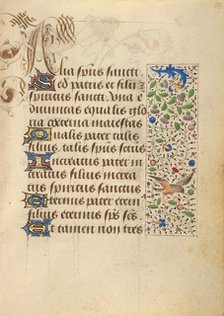 Alia spūs sancti
Sed patris et filii et
spiritus sancti una ē
diuinitas equalis
Qualis pater talis
filius talis spūs sancti
Increatus pater in
creatus filius increa
spiritus sanctus
Eternus pater eter
filius eternus spūs scs
Et tamen non tres